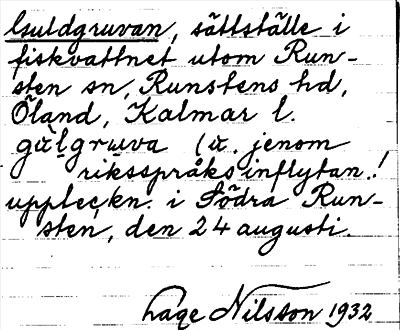 Guldgruvan, sättställe i
fiskvattnet utom Run-
sten sn, Runstens hd,
Öland, Kalmar l.
gålgruva (a. jenom
riksspråks inflytan.!
uppteckn. i Södra Run-
sten, den 24 augusti.
Lage Nilsson 1932